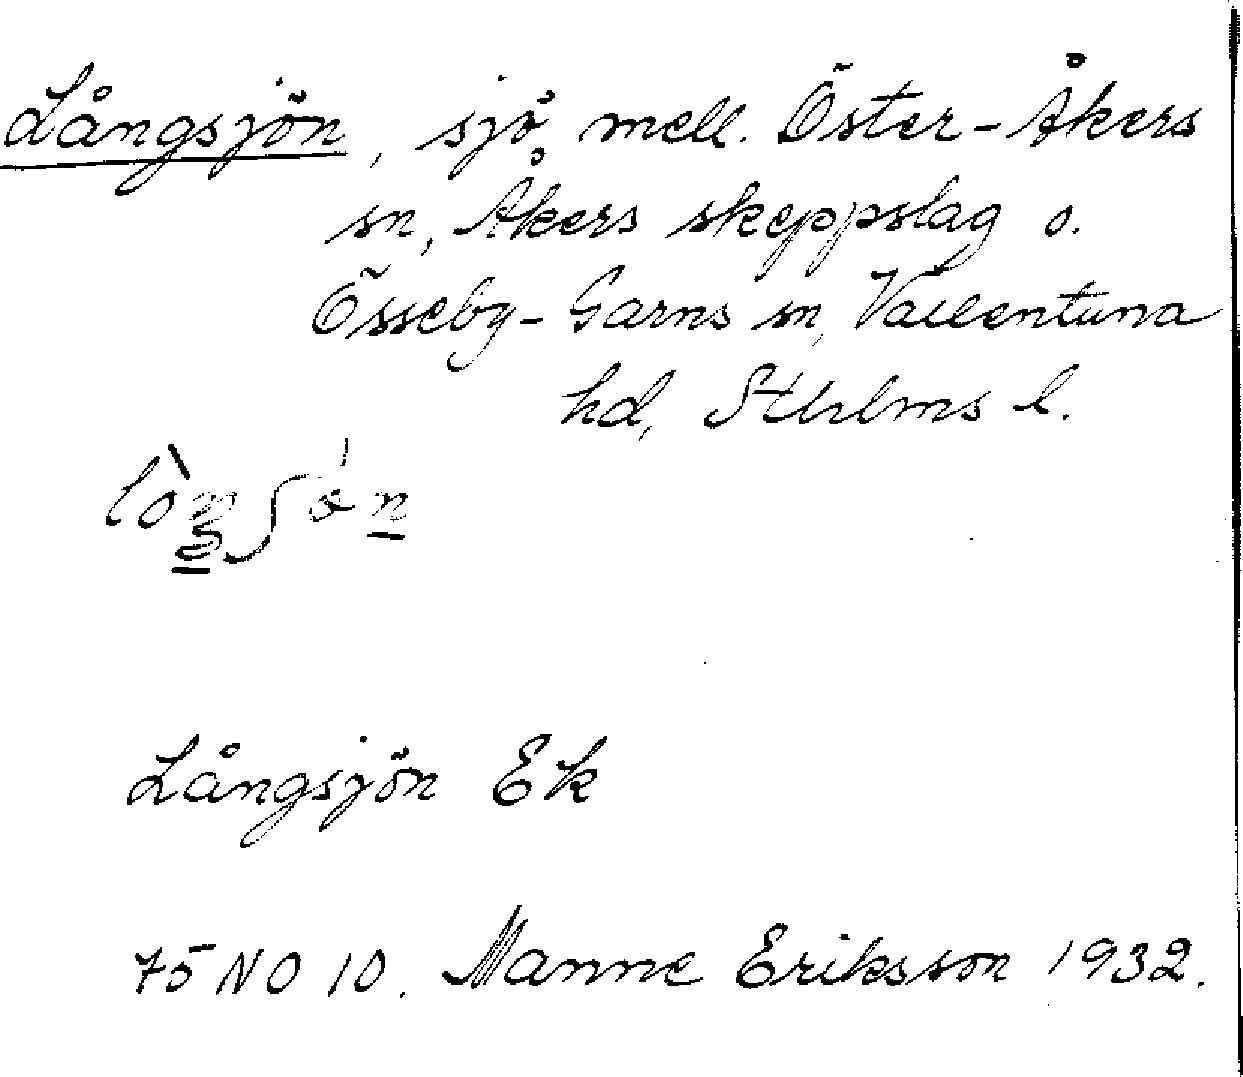 Långsjön, sjö mell. Öster-Åkers
sn, Åkers skeppslag o.
Össeby-Garns sn, Vallentuna
hd, Sthlms l.
Långsjön Ek
75 NO 10. Manne Eriksson 1932.